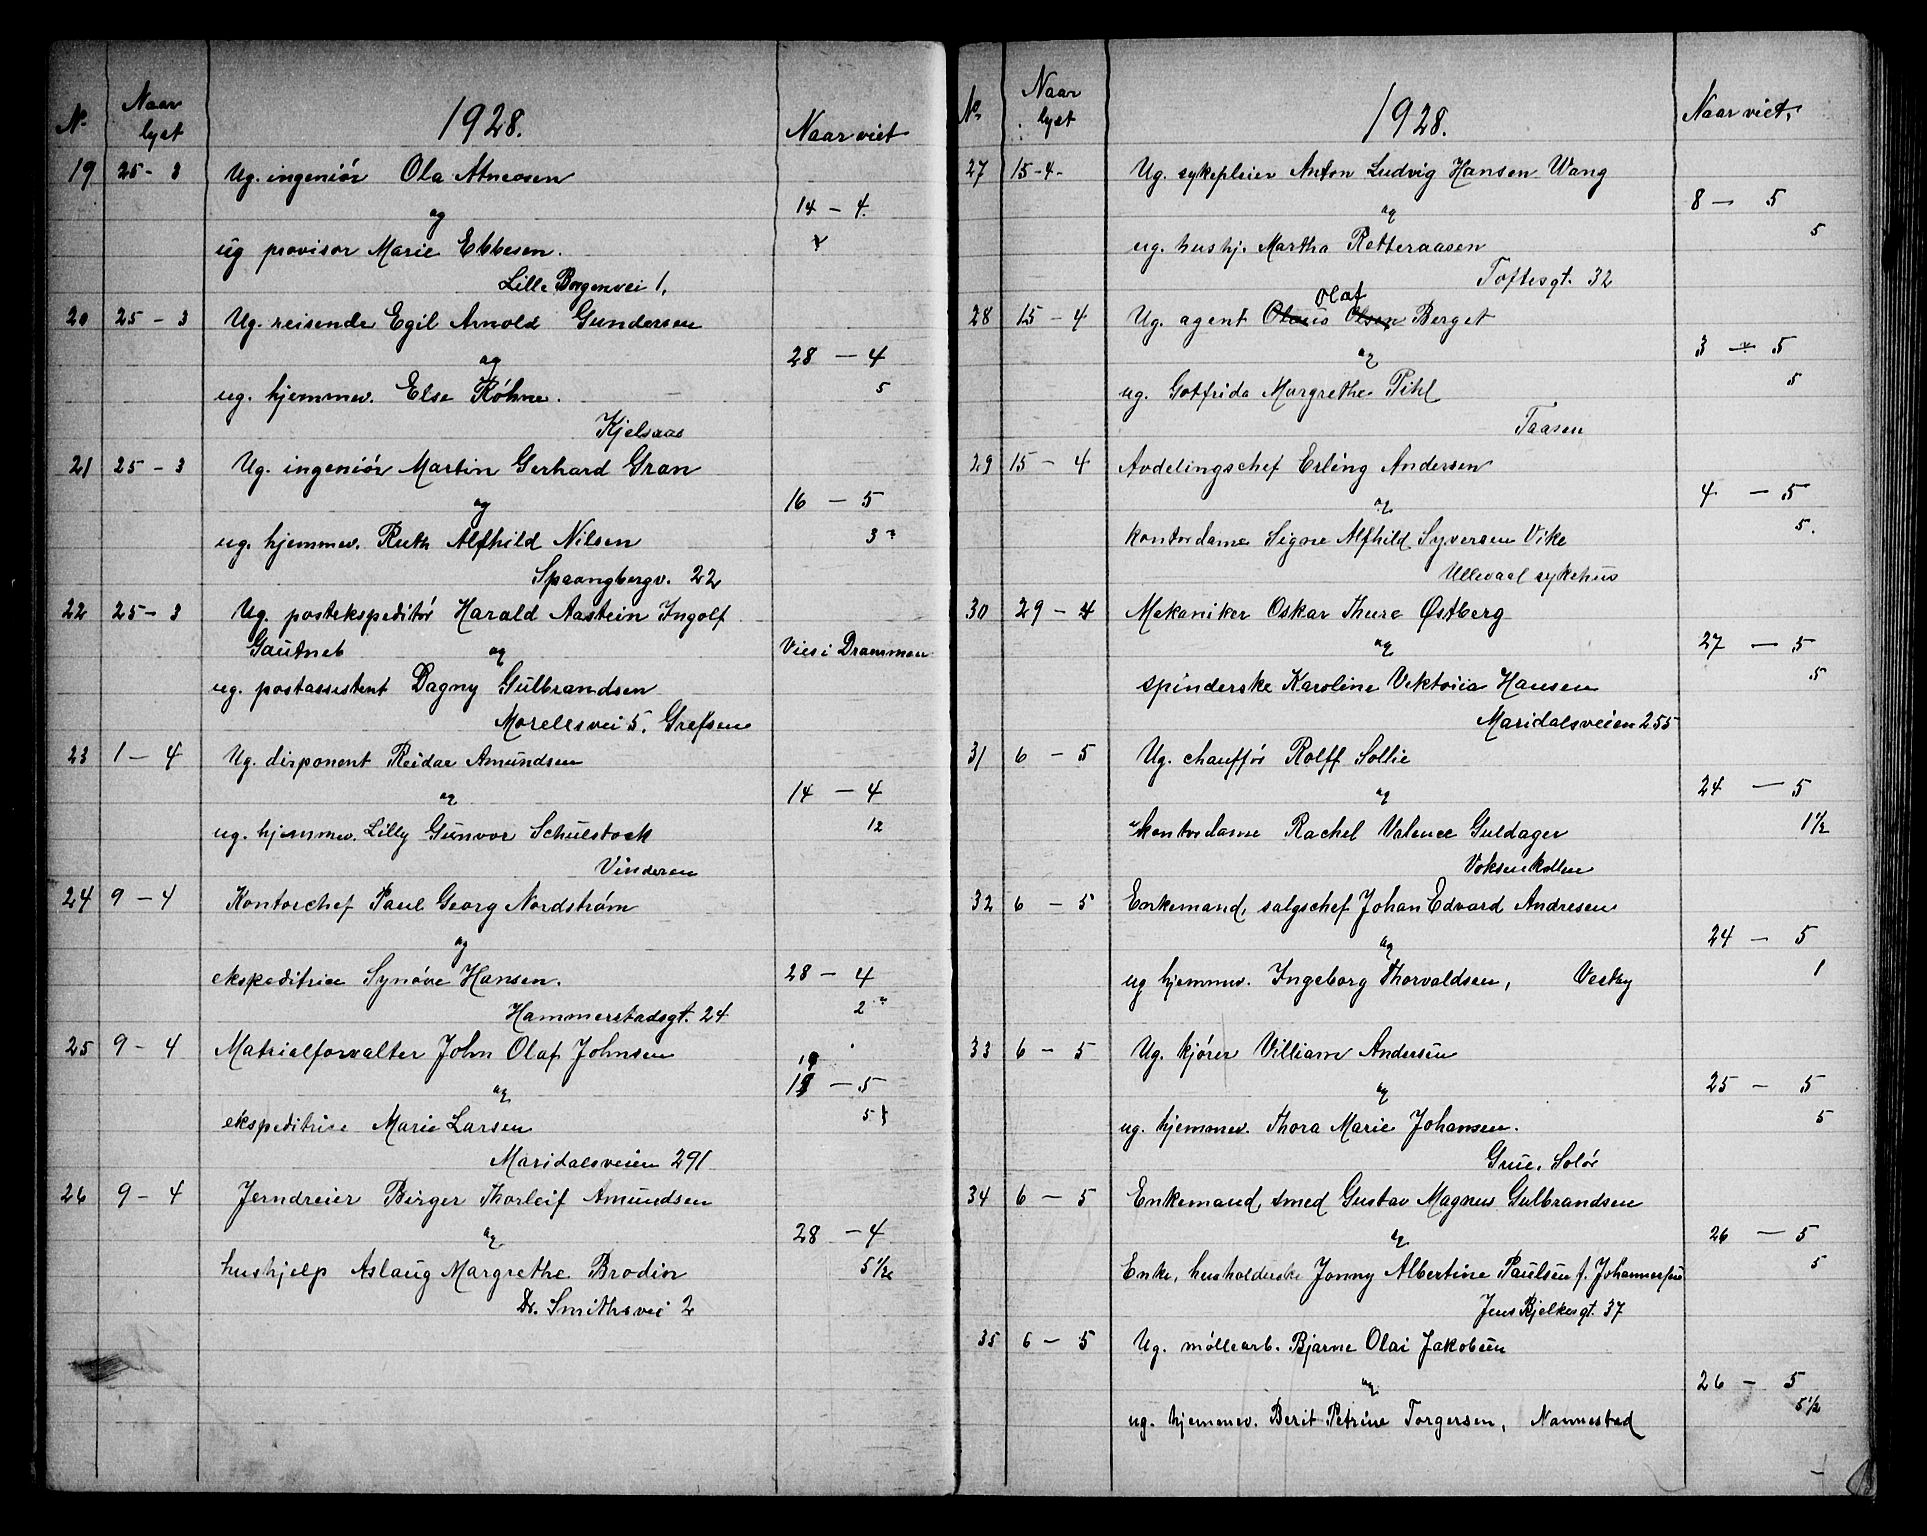 No Naar lyst 1928. Naar viet
19 25 - 3 Ug. ingeniör Ola Atneosen
og 14 - 4.
ug provisor Marie Ebbesen.
Lille Borgenvei 1.
20 25 - 3 Ug. reisende Egil Arnold Gundersen
og 28 - 4
ug. hjemmev. Else Röhne. 5
Kjelsaas
21 25 - 3 Ug. ingeniör Martin Gerhard Gran
og 16 - 5
ug. hjemmev. Ruth Alfhild Nilsen 3
Spaangbergv. 22
22 25 - 3 Ug. postekspeditör Harald Aastein Ingolf
Gautneb og Vies i Drammen
ug. postassistent Dagny Gulbrandsen
Morellsvei 5. Grefsen
23 1 - 4 Ug. disponent Reidar Amundsen
og 14 - 4
ug. hjemmev. Lilly Gunvor Schulstock 12
Vinderen
24 9 - 4 Kontorchef Paul Georg Nordström
og
ekspeditrice Synöve Hansen. 28 - 4
Hammerstadsgt. 24 2
25 9 - 4 Matrialforvalter John Olaf Johnsen
og 19 - 5
ekspeditrise Marie Larsen 5
Maridalsveien 291
26 9 - 4 Jerndreier Birger Thorleif Amundsen
og 28 - 4
hushjelp Aslaug Margrethe Brodin 5 1/2
Dr. Smithsvei 2
No Naar lyst 1928. Naar viet.
27 15 - 4 - Ug. sykepleier Anton Ludvig Hansen Wang
og 8 - 5
ug. hushj. Martha Retteraasen 5
Toftesgt. 32
Olaf
28 15 - 4 Ug. agent Olaus Olsen Berget
og 3 - 5
ug. Gotfrida Margrethe Pihl 5
Taasen
29 15 - 4 Avdelingschef Erling Andersen
og 4 - 5
kontordame Signe Alfhild Syversen Vike 5.
Ullevaal sykehus
30 29 - 4 Mekaniker Oskar Thure Østberg
og 27 - 5
spinderske Karoline Viktoria Hansen 5
Maridalsveien 255
31 6 - 5 Ug. chaufför Rolff Sollie
og 24 - 5
kontordame Rachel Valence Guldager 1 1/2
Voksenkollen
32 6 - 5 Enkemand, salgschef Johan Edvard Andresen
og 24 - 5
ug hjemmev. Ingeborg Thorvaldsen, Vestby 1
33 6 - 5 Ug. kjörer Villiam Andersen
og 25 - 5
ug. hjemmev. Thora Marie Johansen. 5
Grue, Solör
34 6 - 5 Enkemand, smed Gustav Magnus Gulbrandsen
og 26 - 5
Enke, husholderske Jonny Albertine Paulsen f. Johannessen 5
Jens Bjelkesgt. 37
35 6 - 5 Ug. möllearb. Bjarne Olai Jakobsen
og 26 - 5
ug. hjemmev. Berit Petrine Torgersen, Nannestad 5 1/2